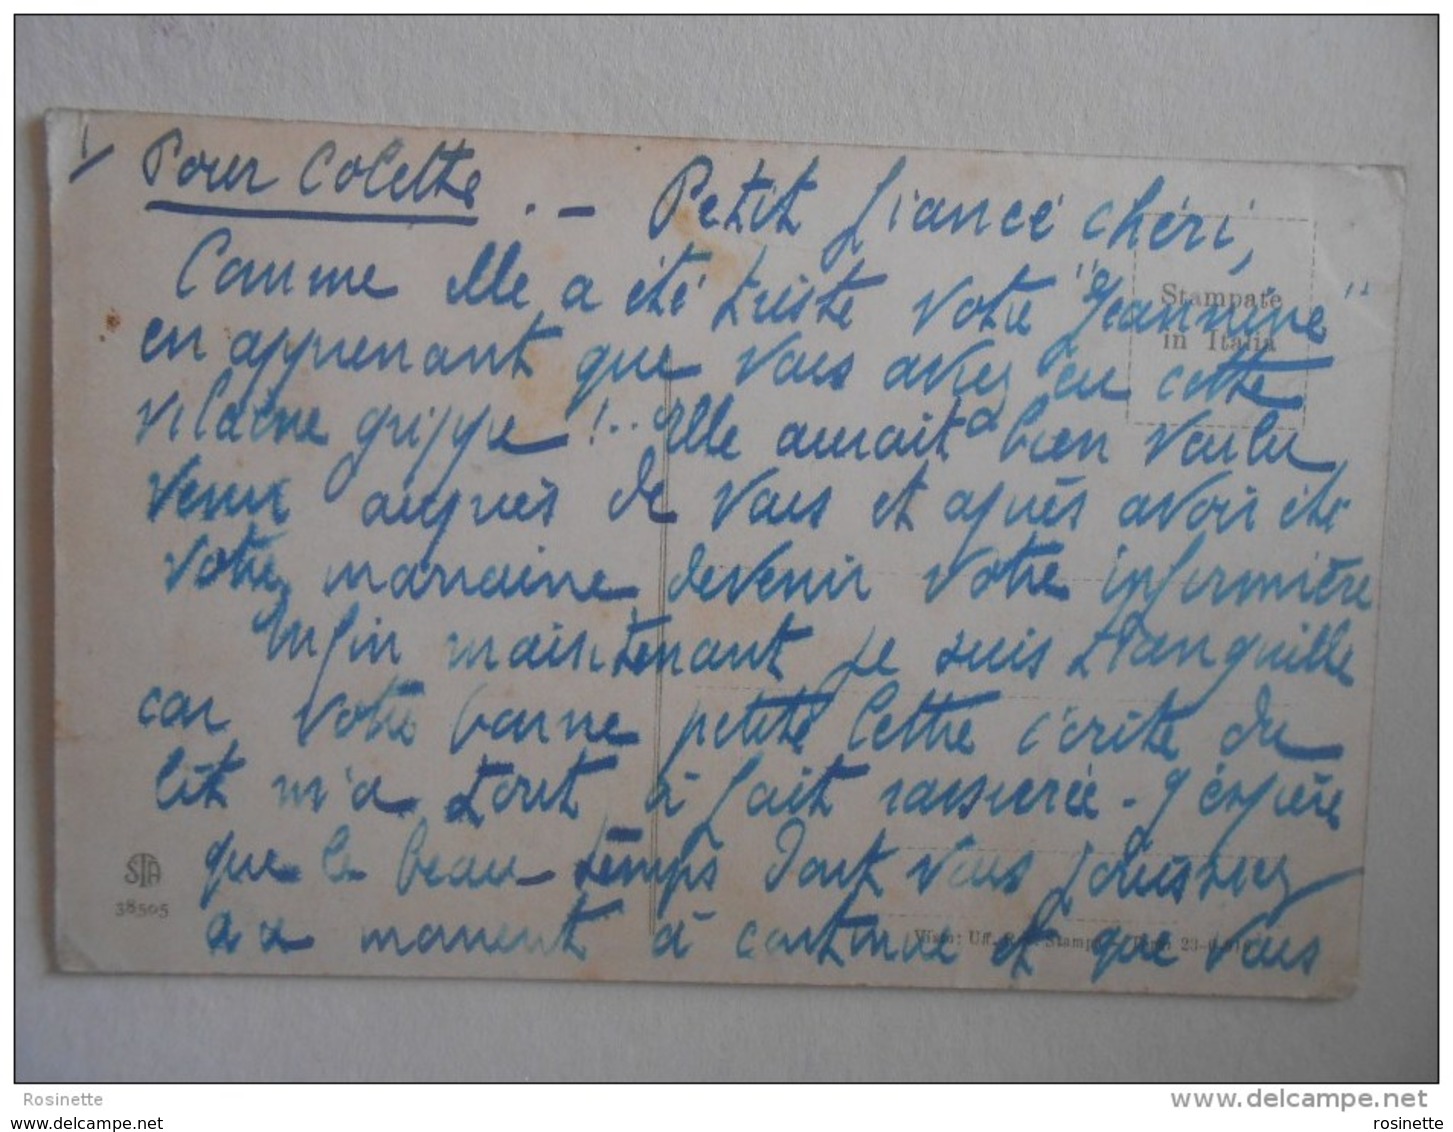 1/ Pour Colette . - Petit fiancé chéri,
Comme elle a été triste votre "Jeannine"
en apprenant que vous avez eu cette
vilaine grippe !.. elle aurait bien voulu
venir auprès de vous et après avoir été
votre marraine, devenir votre infirmière
Enfin maintenant je suis tranquille
car votre bonne petite lettre écrite du
lit m'a tout à fait rassurée - J'espère
que le beau temps dont vous jouissez
au moment à continué et que vous
Stampate
in Italia
STA
38505
Visto: Uff. Rev. Stampa
Rosinette
www.delcampe.net
posté par
rosinette